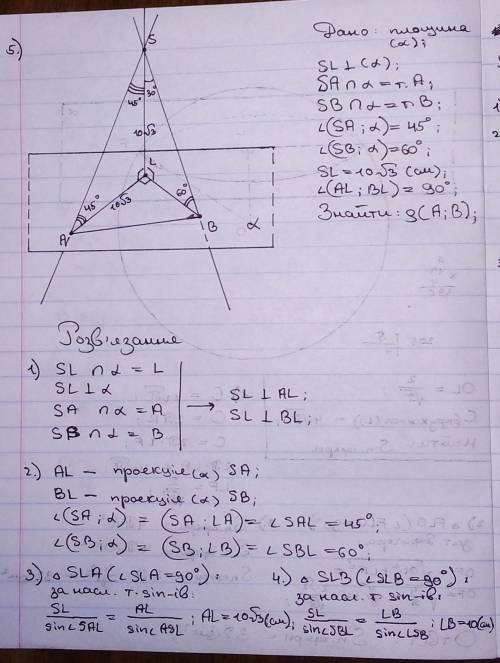 5.)
S
45°
30°
10√3
L
45°
10√3
60°
A
B
α
Дано: площина
(α);
SL ⊥ (α);
SA ∩ α = т. A;
SB ∩ α = т. B;
∠(SA; α) = 45°;
∠(SB; α) = 60°;
SL = 10√3 (см);
∠(AL; BL) = 90°;
Знайти: ρ(A; B);
Розв'язання
1) SL ∩ α = L
SL ⊥ α
SA ∩ α = A
SB ∩ α = B
→ SL ⊥ AL;
SL ⊥ BL;
2.) AL – проекція(α) SA;
BL – проекція(α) SB;
∠(SA; α) = (SA; LA) = ∠SAL = 45°;
∠(SB; α) = (SB; LB) = ∠SBL = 60°;
3.) △ SLA (∠SLA = 90°):
за насл. т. sin-ів:
SL/sin∠SAL = AL/sin∠ASL; AL = 10√3 (см);
4.) △ SLB (∠SLB = 90°):
за насл. т. sin-ів:
SL/sin∠SBL = LB/sin∠LSB; LB = 10 (см)